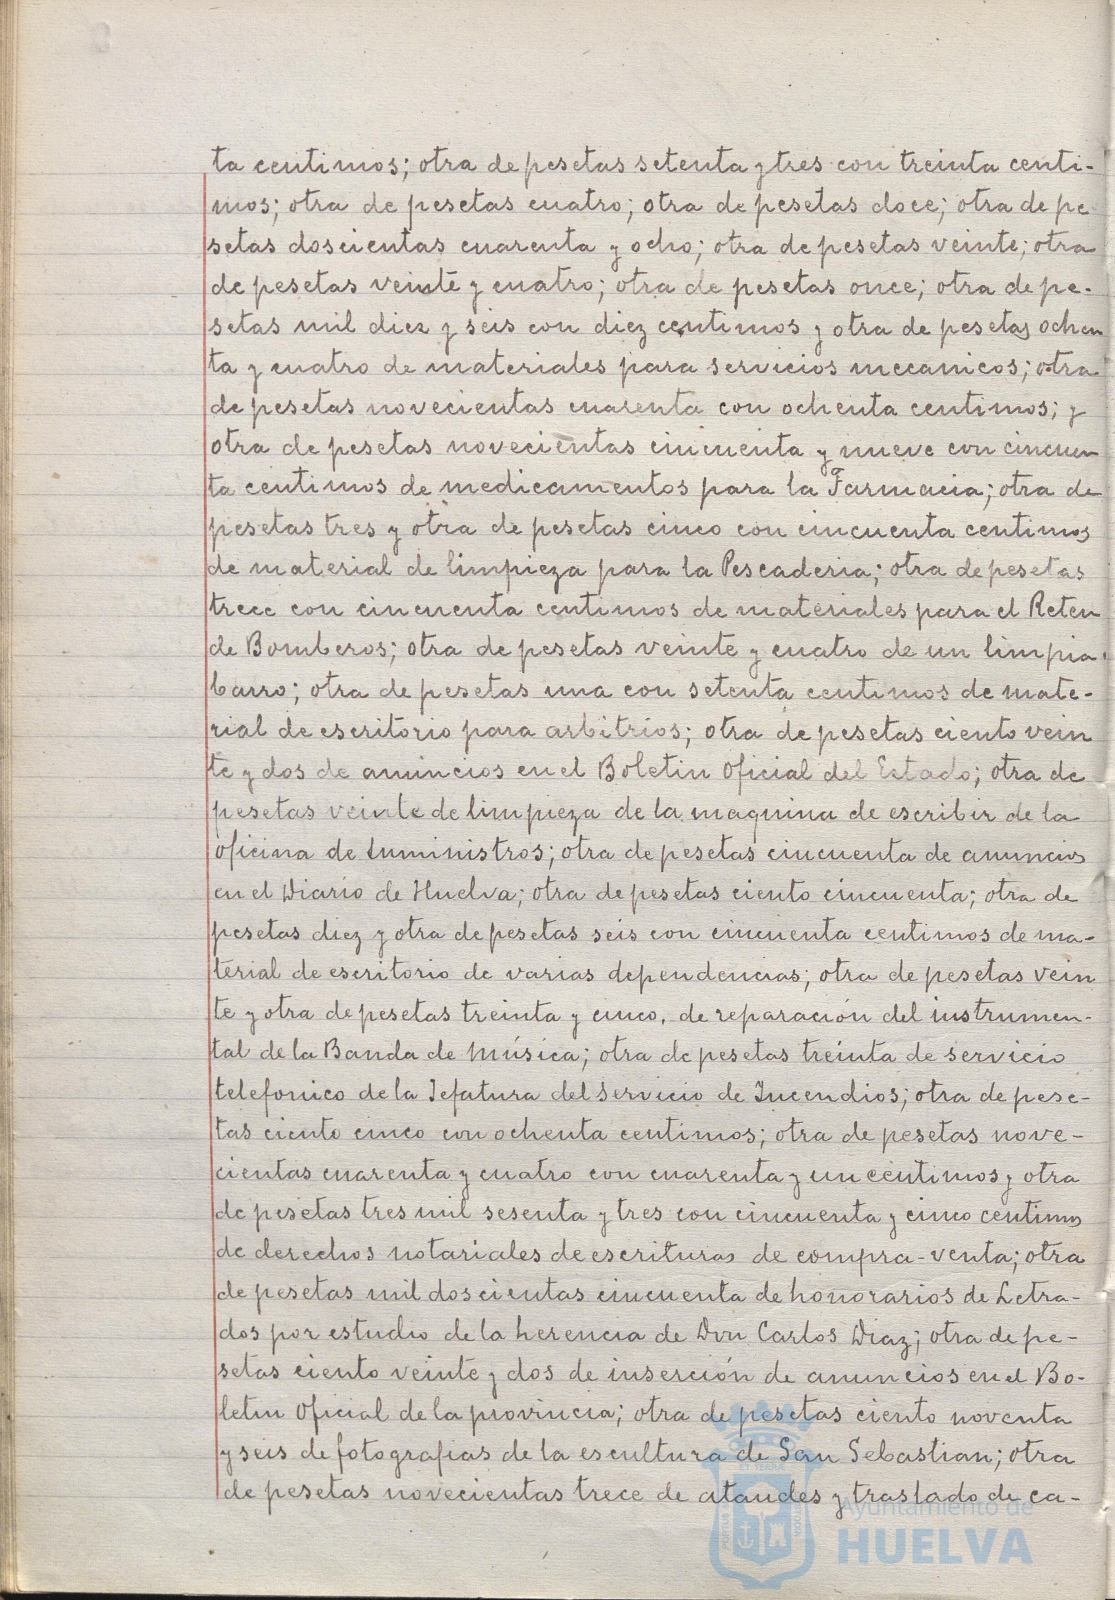 ta centimos; otra de pesetas setenta y tres con treinta centi-
mos; otra de pesetas cuatro; otra de pesetas doce; otra de pe
setas doscientas cuarenta y ocho; otra de pesetas veinte; otra
de pesetas veinte y cuatro; otra de pesetas once; otra de pe-
setas mil diez y seis con diez centimos y otra de pesetas ochen
ta y cuatro de materiales para servicios mecanicos; otra
de pesetas novecientas cuarenta con ochenta centimos; y
otra de pesetas novecientas cincuenta y nueve con cincuen
ta centimos de medicamentos para la Farmacia; otra de
pesetas tres y otra de pesetas cinco con cincuenta centimos
de material de limpieza para la Pescaderia; otra de pesetas
trece con cincuenta centimos de materiales para el Reten
de Bomberos; otra de pesetas veinte y cuatro de un limpia
barro; otra de pesetas una con setenta centimos de mate-
rial de escritorio para arbitrios; otra de pesetas ciento vein
te y dos de anuncios en el Boletin Oficial del Estado; otra de
pesetas veinte de limpieza de la maquina de escribir de la
oficina de Suministros; otra de pesetas cincuenta de anuncios
en el Diario de Huelva; otra de pesetas ciento cincuenta; otra de
pesetas diez y otra de pesetas seis con cincuenta centimos de ma-
terial de escritorio de varias dependencias; otra de pesetas vein
te y otra de pesetas treinta y cinco, de reparación del instrumen-
tal de la Banda de Música; otra de pesetas treinta de servicio
telefonico de la Jefatura del Servicio de Incendios; otra de pese-
tas ciento cinco con ochenta centimos; otra de pesetas nove-
cientas cuarenta y cuatro con cuarenta y un centimos y otra
de pesetas tres mil sesenta y tres con cincuenta y cinco centimos
de derechos notariales de escrituras de compra-venta; otra
de pesetas mil doscientas cincuenta de honorarios de Letra-
dos por estudio de la herencia de Don Carlos Diaz; otra de pe-
setas ciento veinte y dos de inserción de anuncios en el Bo-
letin Oficial de la provincia; otra de pesetas ciento noventa
y seis de fotografias de la escultura de San Sebastian; otra
de pesetas novecientas trece de ataudes y traslado de ca-
Ayuntamiento de
HUELVA